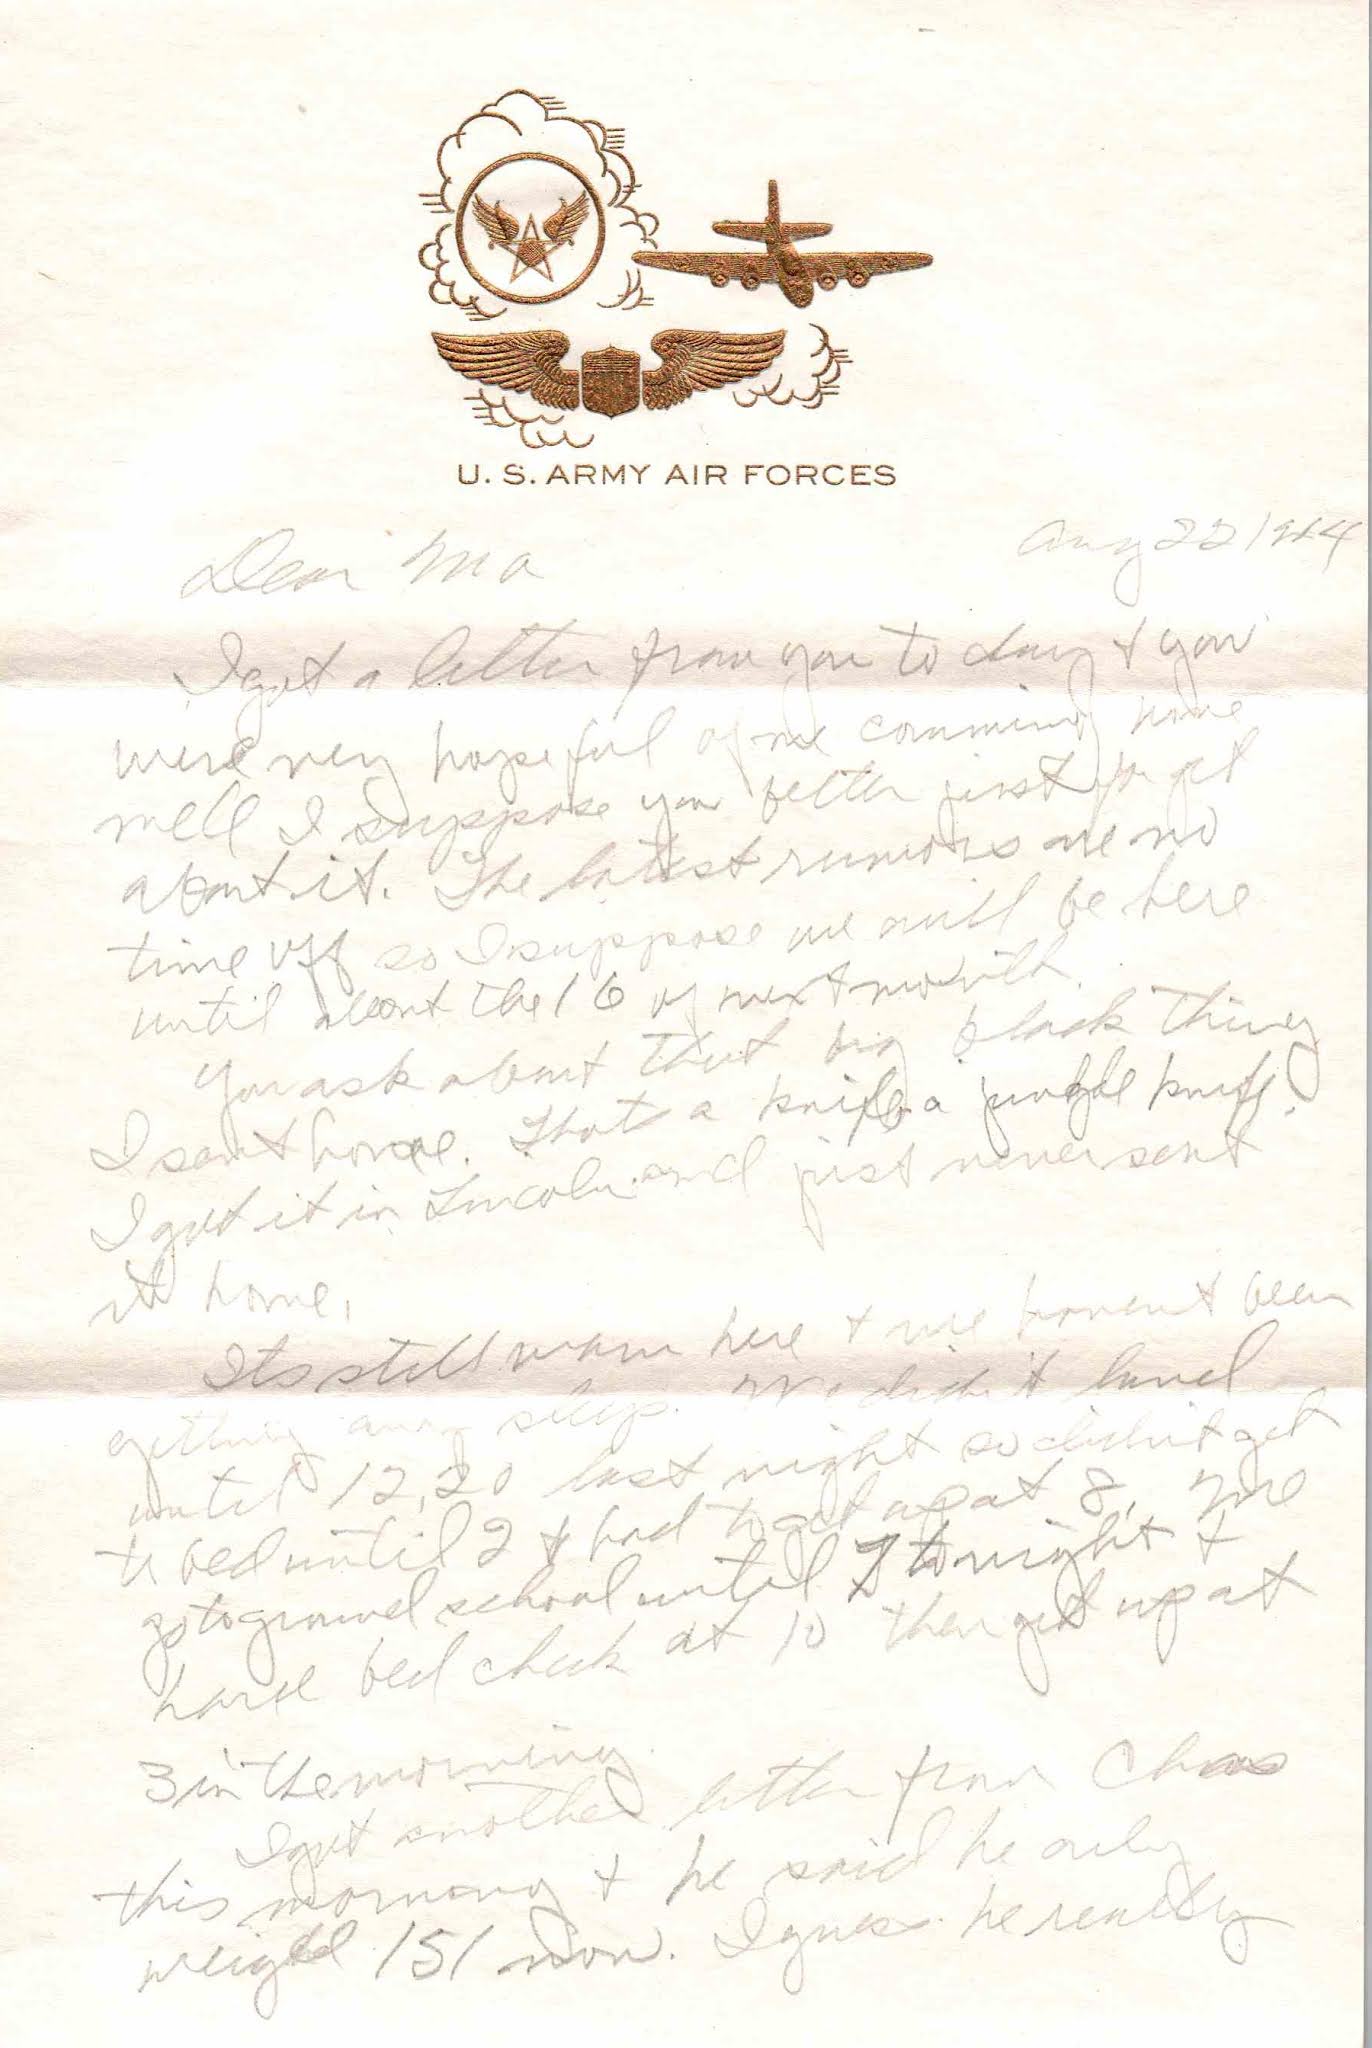 U. S. ARMY AIR FORCES
Aug 22 1944
Dear Ma
I got a letter from you to day & you
were very hopeful of me comming home
well I suppose you better just forget
about it. The latest rumors are no
time off so I suppose we will be here
until about the 16 of next month.
You ask about that big black thing
I sent home. Thats a knife a jungle knife.
I got it in Lincoln and just never sent
it home.
Its still warm here & we haven't been
getting any sleep. We didn't land
until 12,20 last night so didn't get
to bed until 2 & had to get up at 8. We
go to ground school until 7 tonight &
have bed check at 10 then get up at
3 in the morning.
I got another letter from Chas
this morning & he said he only
weighed 151 now. I guess he really